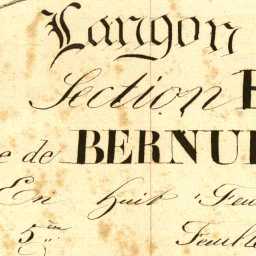 Langon
Section
e de BERNU
En huit Feu
5ème
Feuille